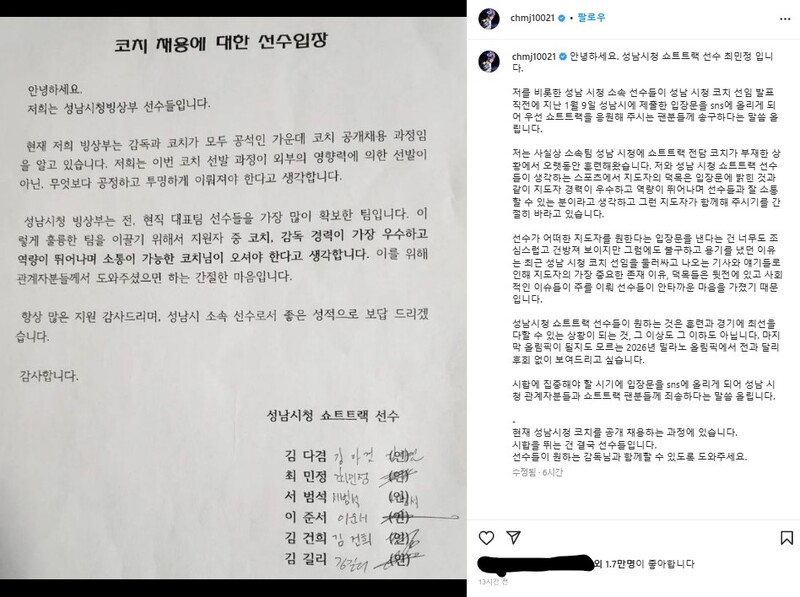 코치 채용에 대한 선수입장
안녕하세요.
저희는 성남시청빙상부 선수들입니다.
현재 저희 빙상부는 감독과 코치가 모두 공석인 가운데 코치 공개채용 과정임
을 알고 있습니다. 저희는 이번 코치 선발 과정이 외부의 영향력에 의한 선발이
아닌, 무엇보다 공정하고 투명하게 이뤄져야 한다고 생각합니다.
성남시청 빙상부는 전, 현직 대표팀 선수들을 가장 많이 확보한 팀입니다. 이
렇게 훌륭한 팀을 이끌기 위해서 지원자 중 코치, 감독 경력이 가장 우수하고
역량이 뛰어나며 소통이 가능한 코치님이 오셔야 한다고 생각합니다. 이를 위해
관계자분들께서 도와주셨으면 하는 간절한 마음입니다.
항상 많은 지원 감사드리며, 성남시 소속 선수로서 좋은 성적으로 보답 드리겠
습니다.
감사합니다.
성남시청 쇼트트랙 선수
김 다겸 (인)
최 민정 최민정 (인)
서 범석 서범석 (인)
이 준서 이준서 (인)
김 건희 김건희 (인)
김 길리 김길리 (인)
chmj10021 • 팔로우
chmj10021 안녕하세요. 성남시청 쇼트트랙 선수 최민정 입니
다.
저를 비롯한 성남 시청 소속 선수들이 성남 시청 코치 선임 발표
직전에 지난 1월 9일 성남시에 제출한 입장문을 sns에 올리게 되
어 우선 쇼트트랙을 응원해 주시는 팬분들께 송구하다는 말씀 올
립니다.
저는 사실상 소속팀 성남 시청에 쇼트트랙 전담 코치가 부재한 상
황에서 오랫동안 훈련해왔습니다. 저와 성남 시청 쇼트트랙 선수
들이 생각하는 스포츠에서 지도자의 덕목은 입장문에 밝힌 것과
같이 지도자 경력이 우수하고 역량이 뛰어나며 선수들과 잘 소통
할 수 있는 분이라고 생각하고 그런 지도자가 함께해 주시기를 간
절히 바라고 있습니다.
선수가 어떠한 지도자를 원한다는 입장문을 낸다는 건 너무도 조
심스럽고 건방져 보이지만 그럼에도 불구하고 용기를 냈던 이유
는 최근 성남 시청 코치 선임을 둘러싸고 나오는 기사와 얘기들로
인해 지도자의 가장 중요한 존재 이유, 덕목들은 뒷전에 있고 사회
적인 이슈들이 주를 이뤄 선수들이 안타까운 마음을 가졌기 때문
입니다.
성남시청 쇼트트랙 선수들이 원하는 것은 훈련과 경기에 최선을
다할 수 있는 상황이 되는 것, 그 이상도 그 이하도 아닙니다. 마지
막 올림픽이 될지도 모르는 2026년 밀라노 올림픽에서 전과 달리
후회 없이 보여드리고 싶습니다.
시합에 집중해야 할 시기에 입장문을 sns에 올리게 되어 성남 시
청 관계자분들과 쇼트트랙 팬분들께 죄송하다는 말씀 올립니다.
-
현재 성남시청 코치를 공개 채용하는 과정에 있습니다.
시합을 뛰는 건 결국 선수들입니다.
선수들이 원하는 감독님과 함께할 수 있도록 도와주세요.
수정됨 · 6시간
외 1.7만명이 좋아합니다
13시간 전